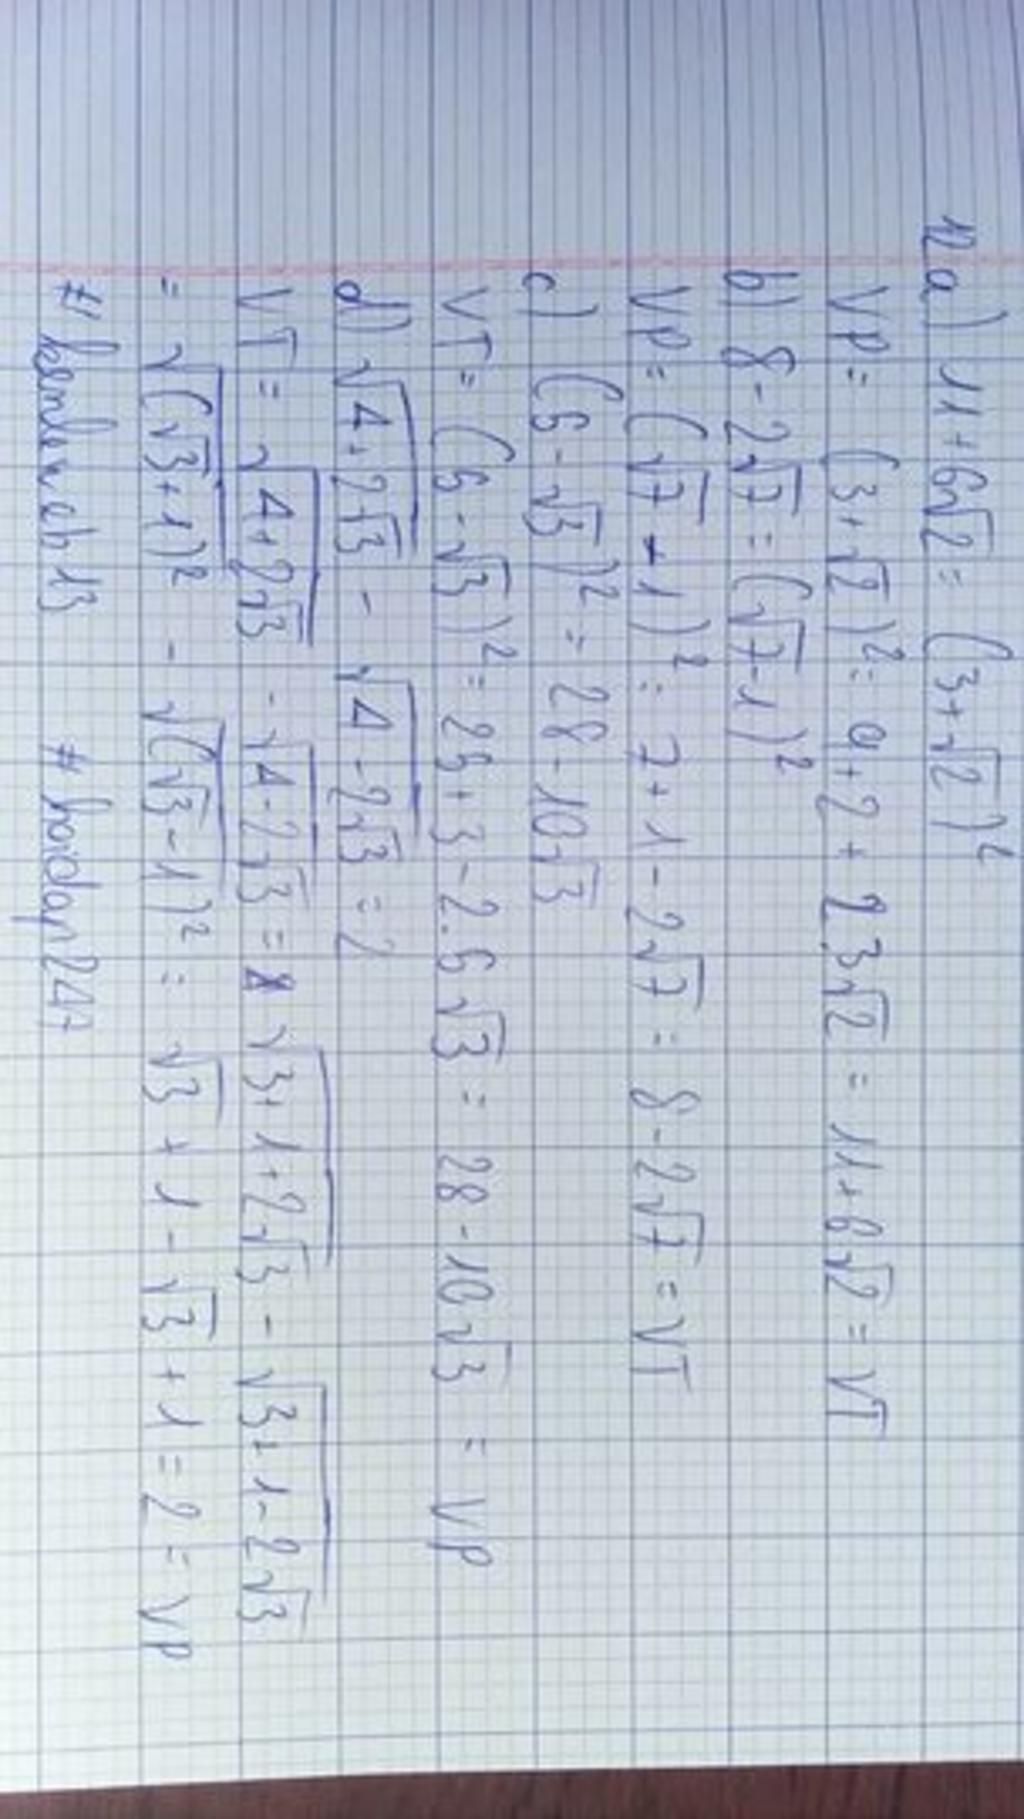 12a) 11+6√2 = (3+√2)²
VP = (3+√2)² = 9+2+2.3√2 = 11+6√2 = VT
b) 8-2√7 = (√7-1)²
VP = (√7-1)² = 7+1-2√7 = 8-2√7 = VT
c) (5-√3)² = 28-10√3
VT = (5-√3)² = 25+3-2.5√3 = 28-10√3 = VP
d) √(4+2√3) - √(4-2√3) = 2
VT = √(4+2√3) - √(4-2√3) = √(3+1+2√3) - √(3+1-2√3)
= √(√3+1)² - √(√3-1)² = √3+1-√3+1 = 2 = VP
# # hoidap247